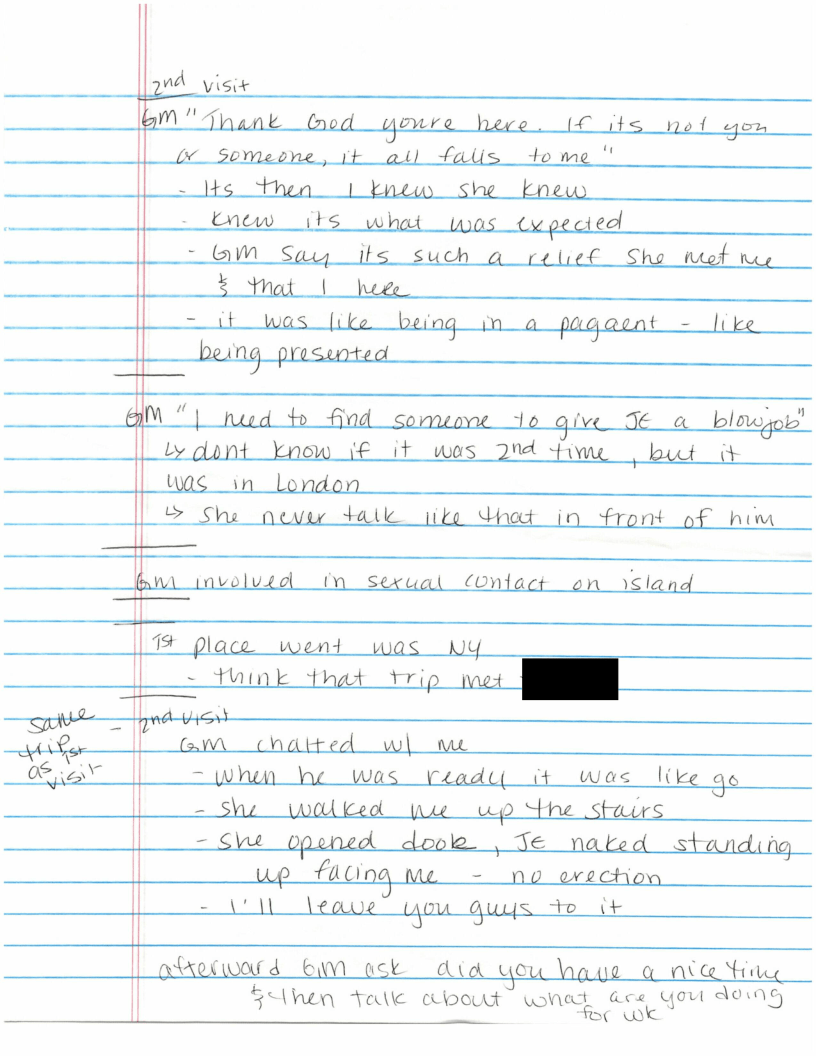 2nd visit
GM "Thank God youre here. If its not you
or someone, it all falls to me"
- Its then I knew she knew
- Knew its what was expected
- GM say its such a relief she met me
& that I here
- it was like being in a pagaent - like
being presented
GM "I need to find someone to give JE a blowjob"
↳ dont know if it was 2nd time, but it
was in London
↳ she never talk like that in front of him
GM involved in sexual contact on island
1st place went was NY
- think that trip met
same trip as 1st visit - 2nd visit
GM chatted w/ me
- when he was ready it was like go
- she walked me up the stairs
- she opened door, JE naked standing
up facing me - no erection
- I'll leave you guys to it
afterward GM ask did you have a nice time
& then talk about what are you doing
for wk